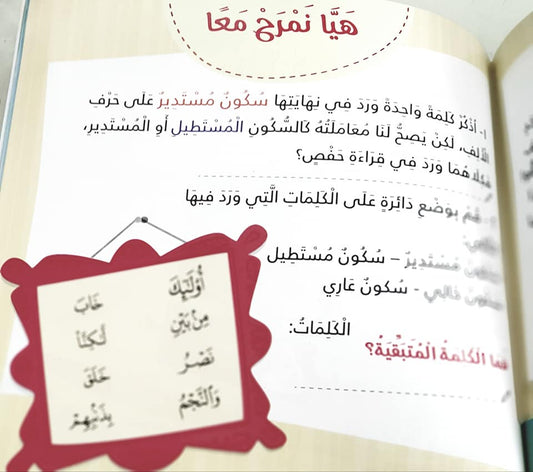 هَيَّا نَمْرَحْ مَعًا
١- أَذْكُرُ كَلِمَةً وَاحِدَةً وَرَدَ فِي نِهَايَتِهَا سُكُونٌ مُسْتَدِيرٌ عَلَى حَرْفِ
الْأَلِفِ، لَكِنْ يَصِحُّ لَنَا مُعَامَلَتُهُ كَالسُّكُونِ الْمُسْتَطِيلِ أَوِ الْمُسْتَدِيرِ،
فَكِلَاهُمَا وَرَدَ فِي قِرَاءَةِ حَفْصٍ؟
قُمْ بِوَضْعِ دَائِرَةٍ عَلَى الْكَلِمَاتِ الَّتِي وَرَدَ فِيهَا
سُكُونٌ مُسْتَدِيرٌ – سُكُونٌ مُسْتَطِيل
سُكُونٌ خَالِي - سُكونٌ عَارِي
الْكَلِمَاتُ:
فَمَا الْكَلِمَةُ الْمُتَبَقِّيَةُ؟
أُوْلَٰٓئِكَ خَابَ
مِنۢ بَيْنِ لَّٰكِنَّا۠
نَصْرُ خَلَقَ
وَٱلنَّجْمُ بِذَنۢبِهِمْ